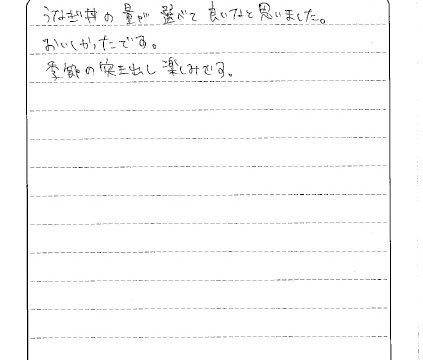 うなぎ丼の量が選べて良いなと思いました。
おいしかったです。
季節の突き出し楽しみです。